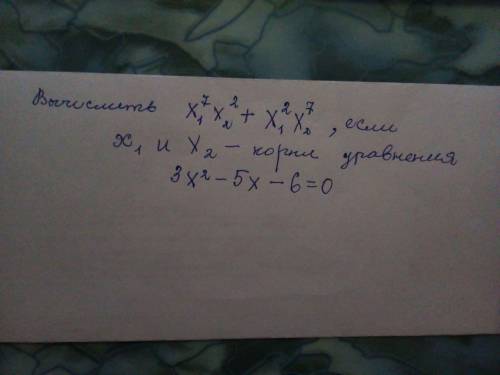 Вычислить x₁⁷x₂² + x₁²x₂⁷, если
x₁ и x₂ – корни уравнения
3x² – 5x – 6 = 0